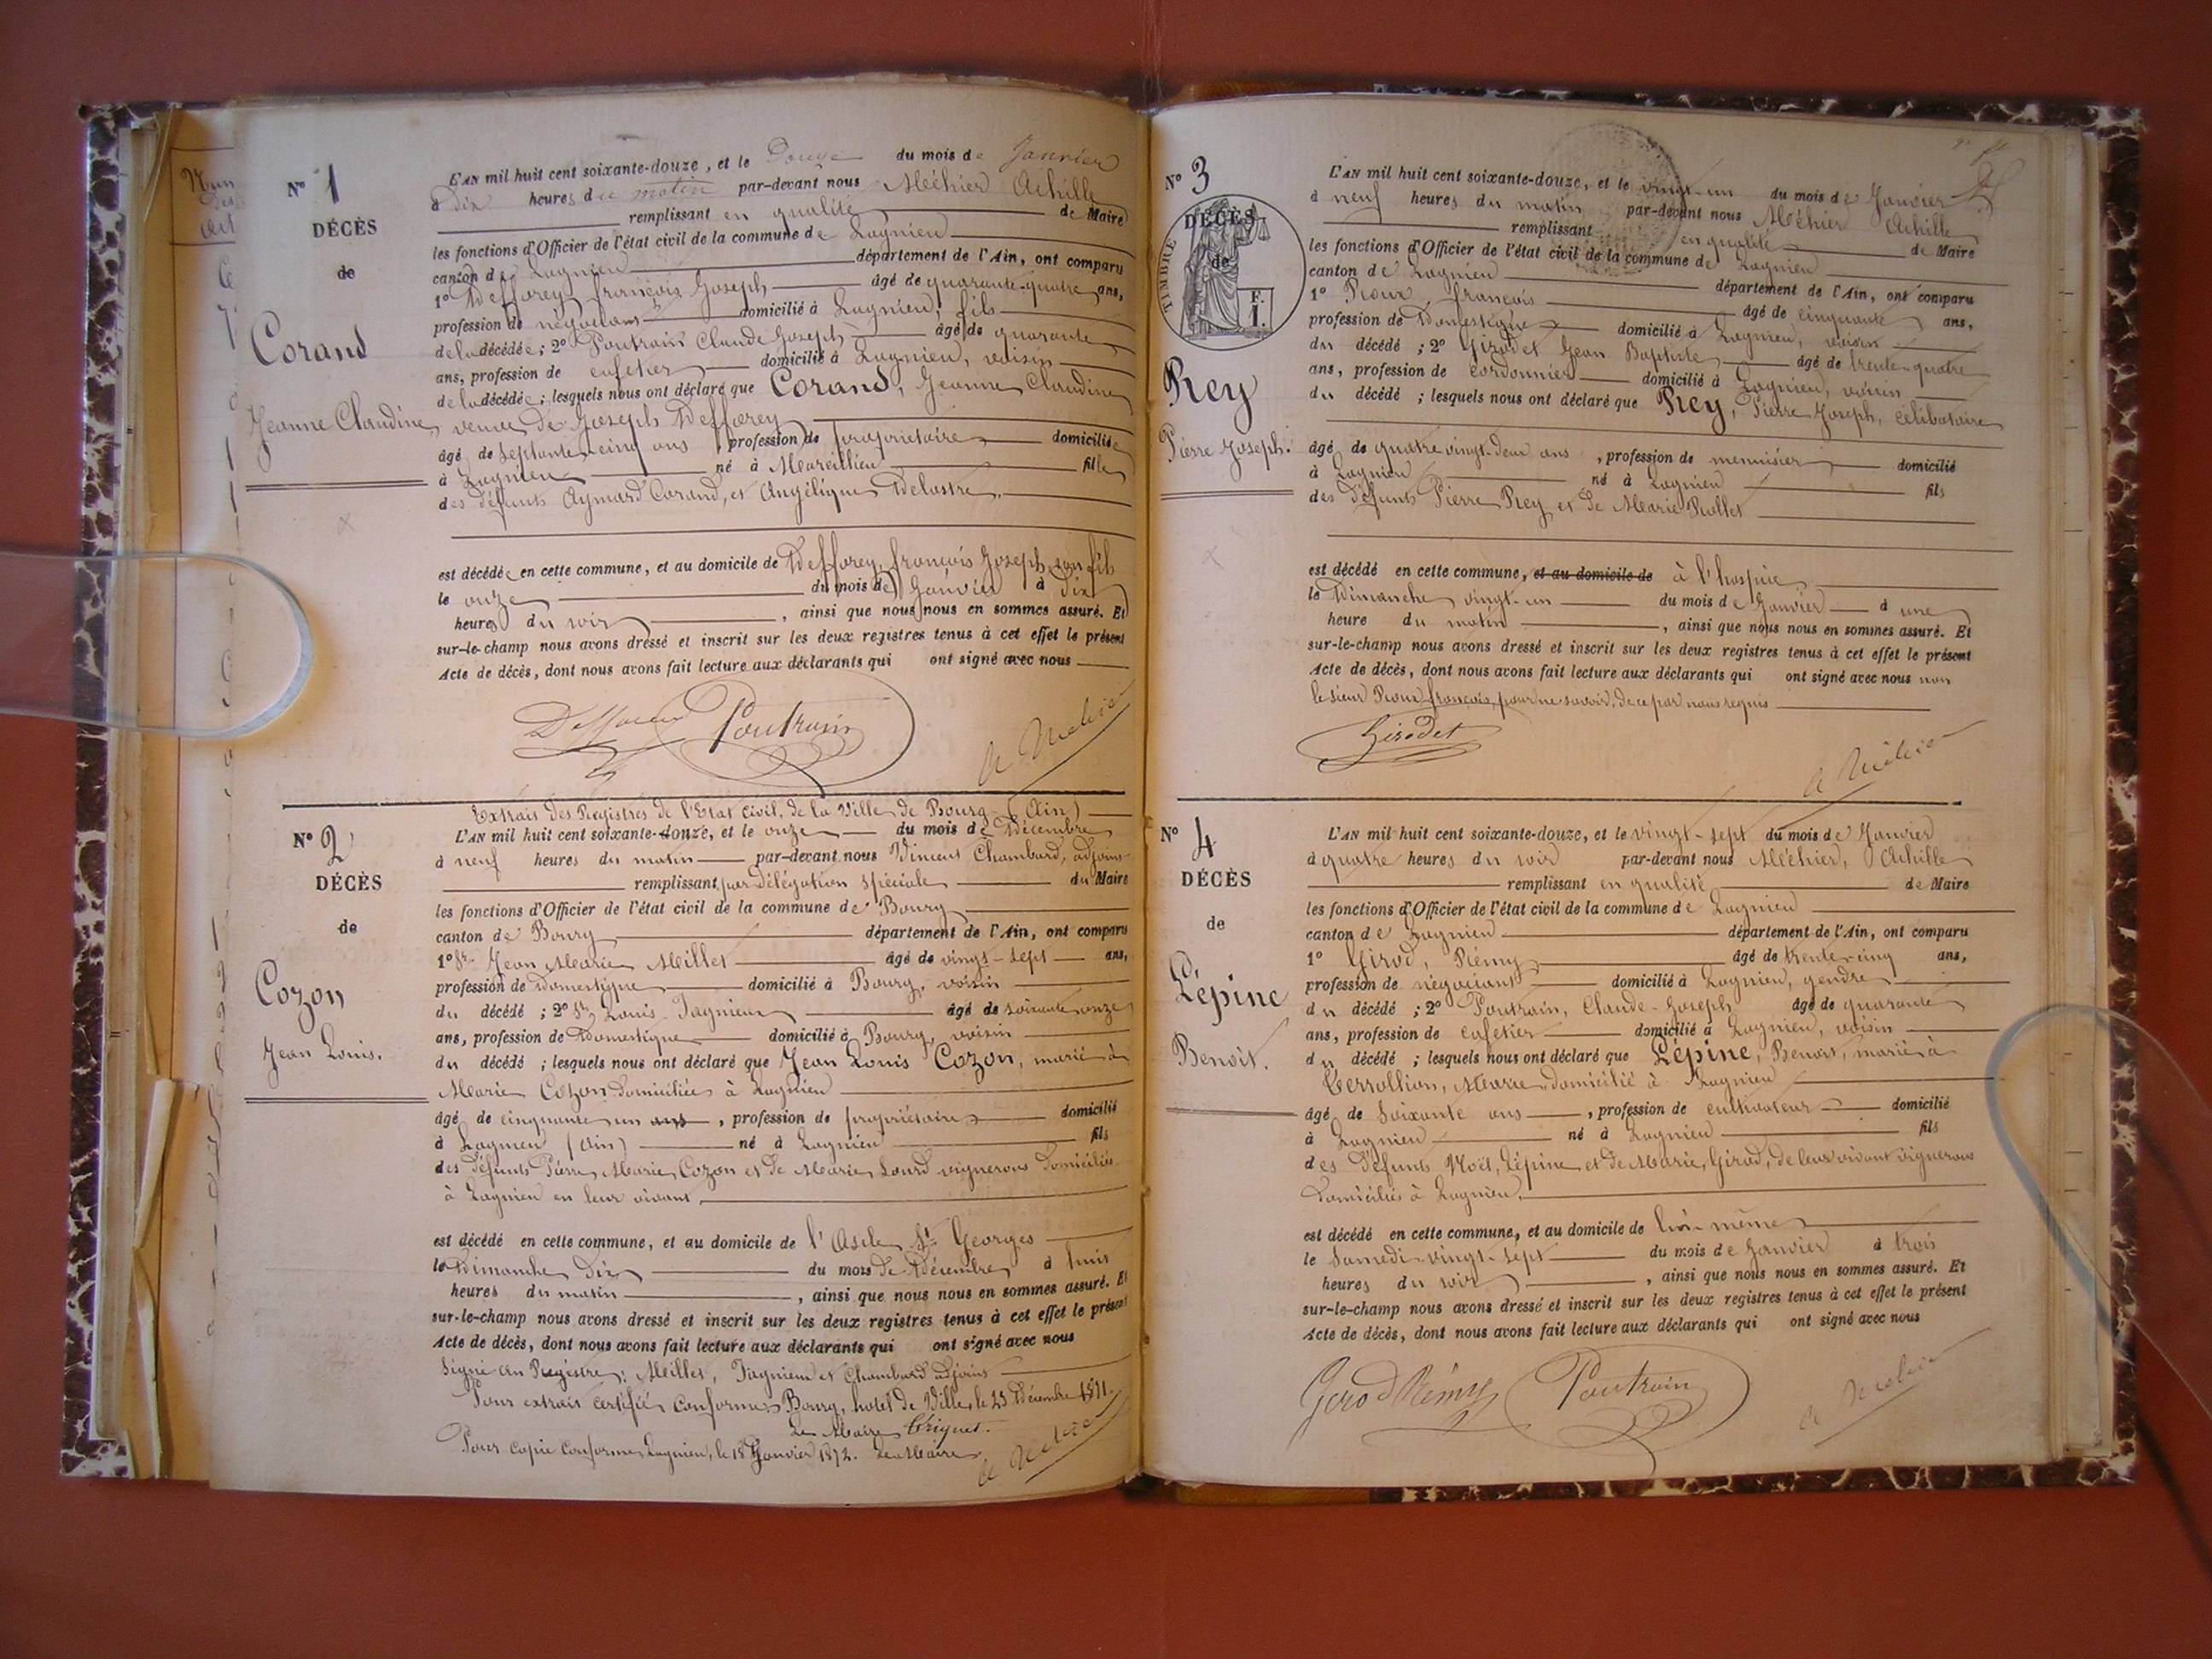 N° 1
DÉCÈS
de
Corand
Jeanne Claudine
L'AN mil huit cent soixante-douze, et le Douze du mois de Janvier
à Dix heures du matin par-devant nous Méhier Achille
remplissant en qualité de Maire
les fonctions d'Officier de l'état civil de la commune de Lagnieu
canton de Lagnieu département de l'Ain, ont comparu
1° Defforey françois Joseph âgé de quarante-quatre ans,
profession de négociant domicilié à Lagnieu, fils
de la décédée ; 2° Poutrain Claude Joseph âgé de quarante
ans, profession de cafetier domicilié à Lagnieu, voisin
de la décédée ; lesquels nous ont déclaré que Corand, Jeanne Claudine
veuve de Joseph Defforey
âgé de septante-cinq ans, profession de propriétaire domicilie
à Lagnieu né à Mareillieu fille
des défunts Aymard Corand, et Angélique Delastre.
est décédée en cette commune, et au domicile de Defforey, françois Joseph son fils
le onze du mois de Janvier à Dix
heures du soir, ainsi que nous nous en sommes assuré. Et
sur-le-champ nous avons dressé et inscrit sur les deux registres tenus à cet effet le présent
Acte de décès, dont nous avons fait lecture aux déclarants qui ont signé avec nous
Defforey Poutrain A Méhier
Extrait des Registres de l'Etat civil, de la Ville de Bourg (Ain)
N° 2
DÉCÈS
de
Cozon
Jean Louis.
L'AN mil huit cent soixante-onze, et le onze du mois de Décembre
à neuf heures du matin par-devant nous Vincent Chambard, adjoint
remplissant par délégation spéciale du Maire
les fonctions d'Officier de l'état civil de la commune de Bourg
canton de Bourg département de l'Ain, ont comparu
1° Sr. Jean Marie Millet âgé de vingt-sept ans,
profession de Domestique domicilié à Bourg, voisin
du décédé ; 2° Sr. Louis Tagnieux âgé de soixante onze
ans, profession de Domestique domicilié à Bourg, voisin
du décédé ; lesquels nous ont déclaré que Jean Louis Cozon, marié à
Marie Cozon domiciliés à Lagnieu
âgé de cinquante un ans, profession de propriétaire domicilié
à Lagnieu (Ain) né à Lagnieu fils
des défunts Pierre Marie Cozon et de Marie Lourd vignerons domiciliés
à Lagnieu en leur vivant
est décédé en cette commune, et au domicile de l'Asile St Georges
le Dimanche Dix du mois de Décembre à huit
heures du matin, ainsi que nous nous en sommes assuré. Et
sur-le-champ nous avons dressé et inscrit sur les deux registres tenus à cet effet le présent
Acte de décès, dont nous avons fait lecture aux déclarants qui ont signé avec nous
Signé au Registre : Millet, Tagnieux et Chambard adjoint
Pour extrait certifié conforme, Bourg, hotel de Ville, le 23 Décembre 1871.
Le Maire
Pour copie conforme, Lagnieu, le 18 Janvier 1872. Le Maire
A Méhier
N° 3
DÉCÈS
de
TIMBRE
F.
1.
Rey
Pierre Joseph.
L'AN mil huit cent soixante-douze, et le vingt-un du mois de Janvier
à neuf heures du matin par-devant nous Méhier Achille
remplissant en qualité de Maire
les fonctions d'Officier de l'état civil de la commune de Lagnieu
canton de Lagnieu département de l'Ain, ont comparu
1° Proux, françois âgé de cinquante ans,
profession de Domestique domicilié à Lagnieu, voisin
du décédé ; 2° Girodet Jean Baptiste âgé de trente-quatre
ans, profession de cordonnier domicilié à Lagnieu, voisin
du décédé ; lesquels nous ont déclaré que Rey, Pierre Joseph, célibataire
âgé de quatre vingt-deux ans, profession de menuisier domicilié
à Lagnieu né à Lagnieu fils
des défunts Pierre Rey et de Marie Rollet
est décédé en cette commune, et au domicile de à l'hospice
le Dimanche vingt-un du mois de Janvier à une
heure du matin, ainsi que nous nous en sommes assuré. Et
sur-le-champ nous avons dressé et inscrit sur les deux registres tenus à cet effet le présent
Acte de décès, dont nous avons fait lecture aux déclarants qui ont signé avec nous non
le sieur Proux françois pour ne savoir, de ce par nous requis
Girodet
A Méhier
N° 4
DÉCÈS
de
Lépine
Benoit.
L'AN mil huit cent soixante-douze, et le vingt-sept du mois de Janvier
à quatre heures du soir par-devant nous Méhier, Achille
remplissant en qualité de Maire
les fonctions d'Officier de l'état civil de la commune de Lagnieu
canton de Lagnieu département de l'Ain, ont comparu
1° Girod, Rémy âgé de trente-cinq ans,
profession de négociant domicilié à Lagnieu, gendre
du décédé ; 2° Poutrain, Claude-Joseph âgé de quarante
ans, profession de cafetier domicilié à Lagnieu, voisin
du décédé ; lesquels nous ont déclaré que Lépine, Benoit, marié à
Terrollion, Marie domicilié à Lagnieu
âgé de Soixante ans, profession de cultivateur domicilié
à Lagnieu né à Lagnieu fils
des défunts Noël, Lépine et de Marie, Girod, de leur vivant vignerons
domiciliés à Lagnieu.
est décédé en cette commune, et au domicile de lui-même
le Samedi vingt-sept du mois de Janvier à trois
heures du soir, ainsi que nous nous en sommes assuré. Et
sur-le-champ nous avons dressé et inscrit sur les deux registres tenus à cet effet le présent
Acte de décès, dont nous avons fait lecture aux déclarants qui ont signé avec nous
Girod Rémy Poutrain A Méhier